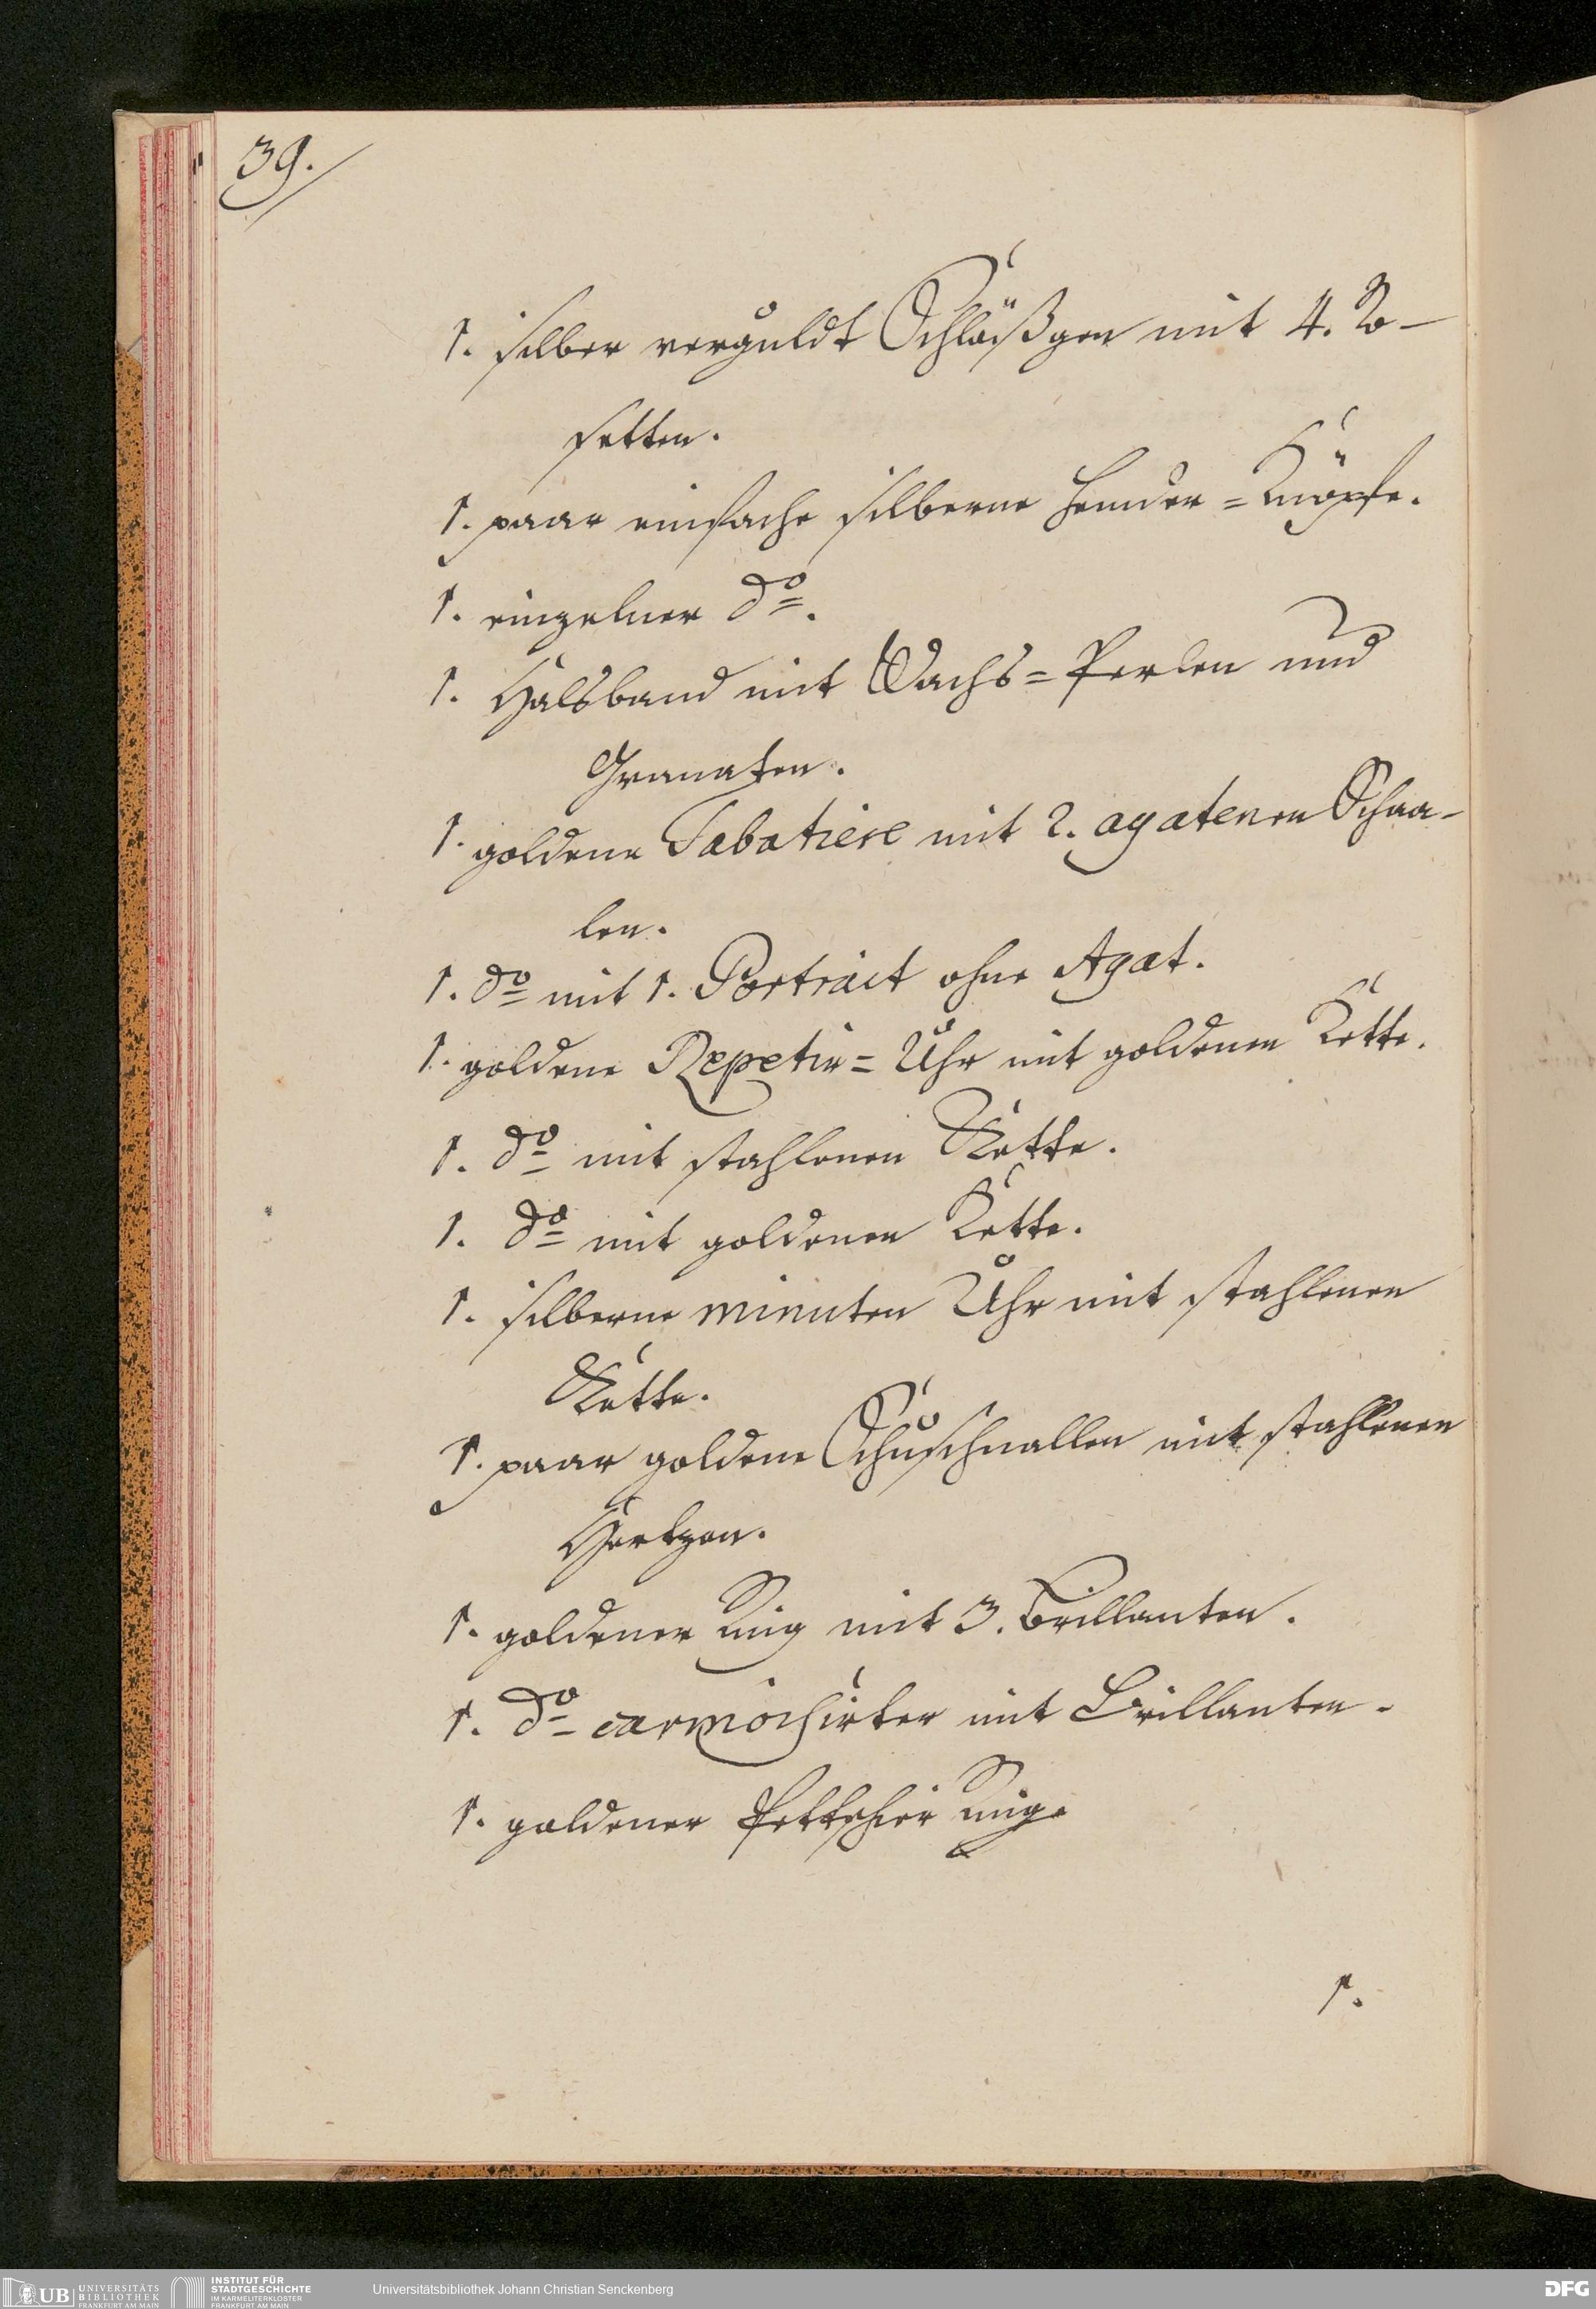 39.
1. silber verguldt Schlößgen mit 4. Ro-
setten.
1. paar einfache silberne Hemder=Knöpfe.
1. einzelner do.
1. Halsband mit Wachs=Perlen und
Granaten.
1. goldene Tabatiere mit 2. agatenen Schaa-
len.
1. do mit 1. Portrait ohne Agat.
1. goldene Repetir=Uhr mit goldenen Kette.
1. do mit stahlenen Kette.
1. do mit goldenen Kette.
1. silberne minuten Uhr mit stahlenen
Kette.
1. paar goldene Schuschnallen mit stahlenen
Hertzen.
1. goldener Ring mit 3. Brillanten.
1. do carmoisirter mit Brillanten.
1. goldener Pettschier Ring.
1.
UB UNIVERSITÄTS BIBLIOTHEK FRANKFURT AM MAIN
INSTITUT FÜR STADTGESCHICHTE IM KARMELITERKLOSTER FRANKFURT AM MAIN
Universitätsbibliothek Johann Christian Senckenberg
DFG